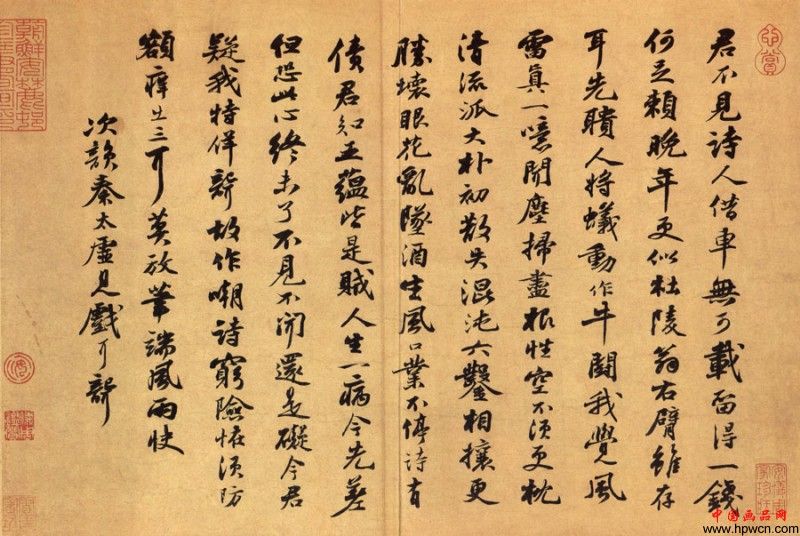 君不見詩人借車無可載留得一錢
何足賴晚年更似杜陵翁右臂雖存
耳先聵人將蟻動作牛鬭我覺風
雷真一噫聞塵掃盡根性空不須更枕
清流派大朴初散失混沌六鑿相攘更
勝壞眼花亂墜酒生風口業不停詩有
債君知五蘊皆是賊人生一病今先差
但恐此心終未了不見不聞還是礙今君
疑我特佯聾故作嘲詩窮險怪須防
額癢出三耳莫放筆端風雨快
次韻秦太虛見戲耳聾
中国画品网
www.hpwcn.com